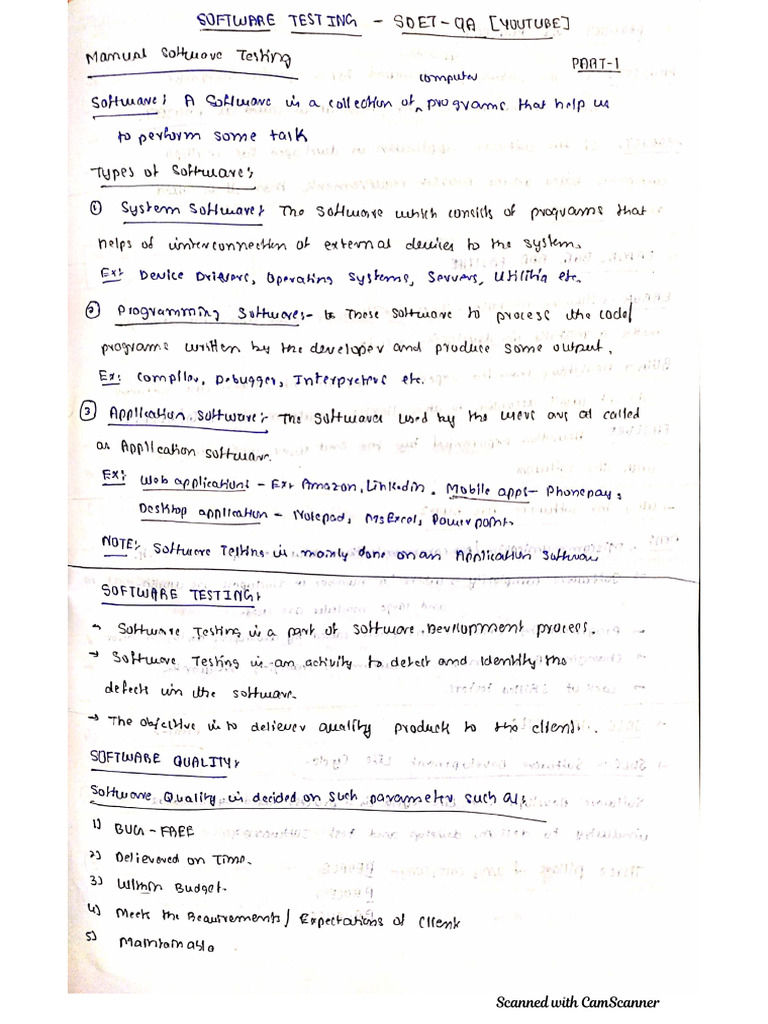 SOFTWARE TESTING - SDET-QA [YOUTUBE]
Manual Software Testing
PART-1
computer
Software: A Software is a collection of ^ programs that help us
to perform some task
Types of Software:
① System Software: The software which consists of programs that
helps of interconnection of external devices to the system.
Ex: Device Drivers, Operating Systems, Servers, Utilities etc.
② Programming Software:- These software to process the code/
programs written by the developer and produce some output.
Ex: Compiler, Debugger, Interpreters etc.
③ Application Software:- The Softwares used by the users are called
as Application software.
Ex: Web applications - Ex: Amazon, Linkedin. Mobile apps- Phonepay,
Desktop application - Notepad, Ms Excel, Powerpoint.
NOTE: Software Testing is mainly done on an Application Software
SOFTWARE TESTING:
→ Software Testing is a part of software Development process.
→ Software Testing is an activity to detect and identify the
defects in the software.
→ The objective is to deliever quality product to the client.
SOFTWARE QUALITY:
Software Quality is decided on such parameters such as:
1) BUG-FREE
2) Delievered on Time.
3) Within Budget.
4) Meets the Requirements/ Expectations of Client
5) Maintainable
Scanned with CamScanner